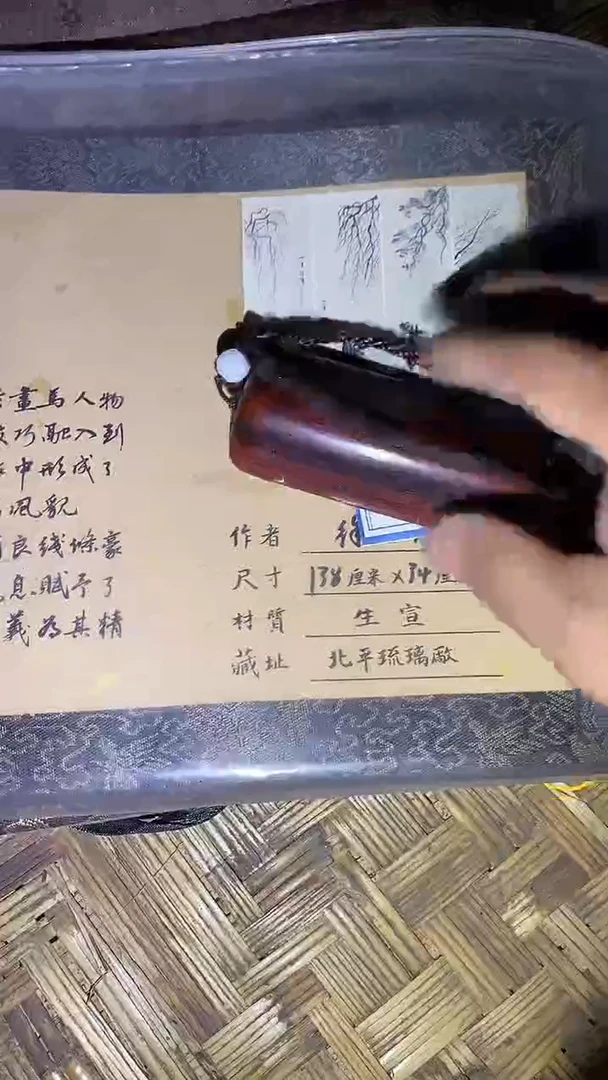 畫馬人物
巧融入到
中形成了
風貌
良线條豪
息賦予了
義為其精
作者 徐
尺寸 138厘米X34厘
材質 生宣
藏址 北平琉璃廠